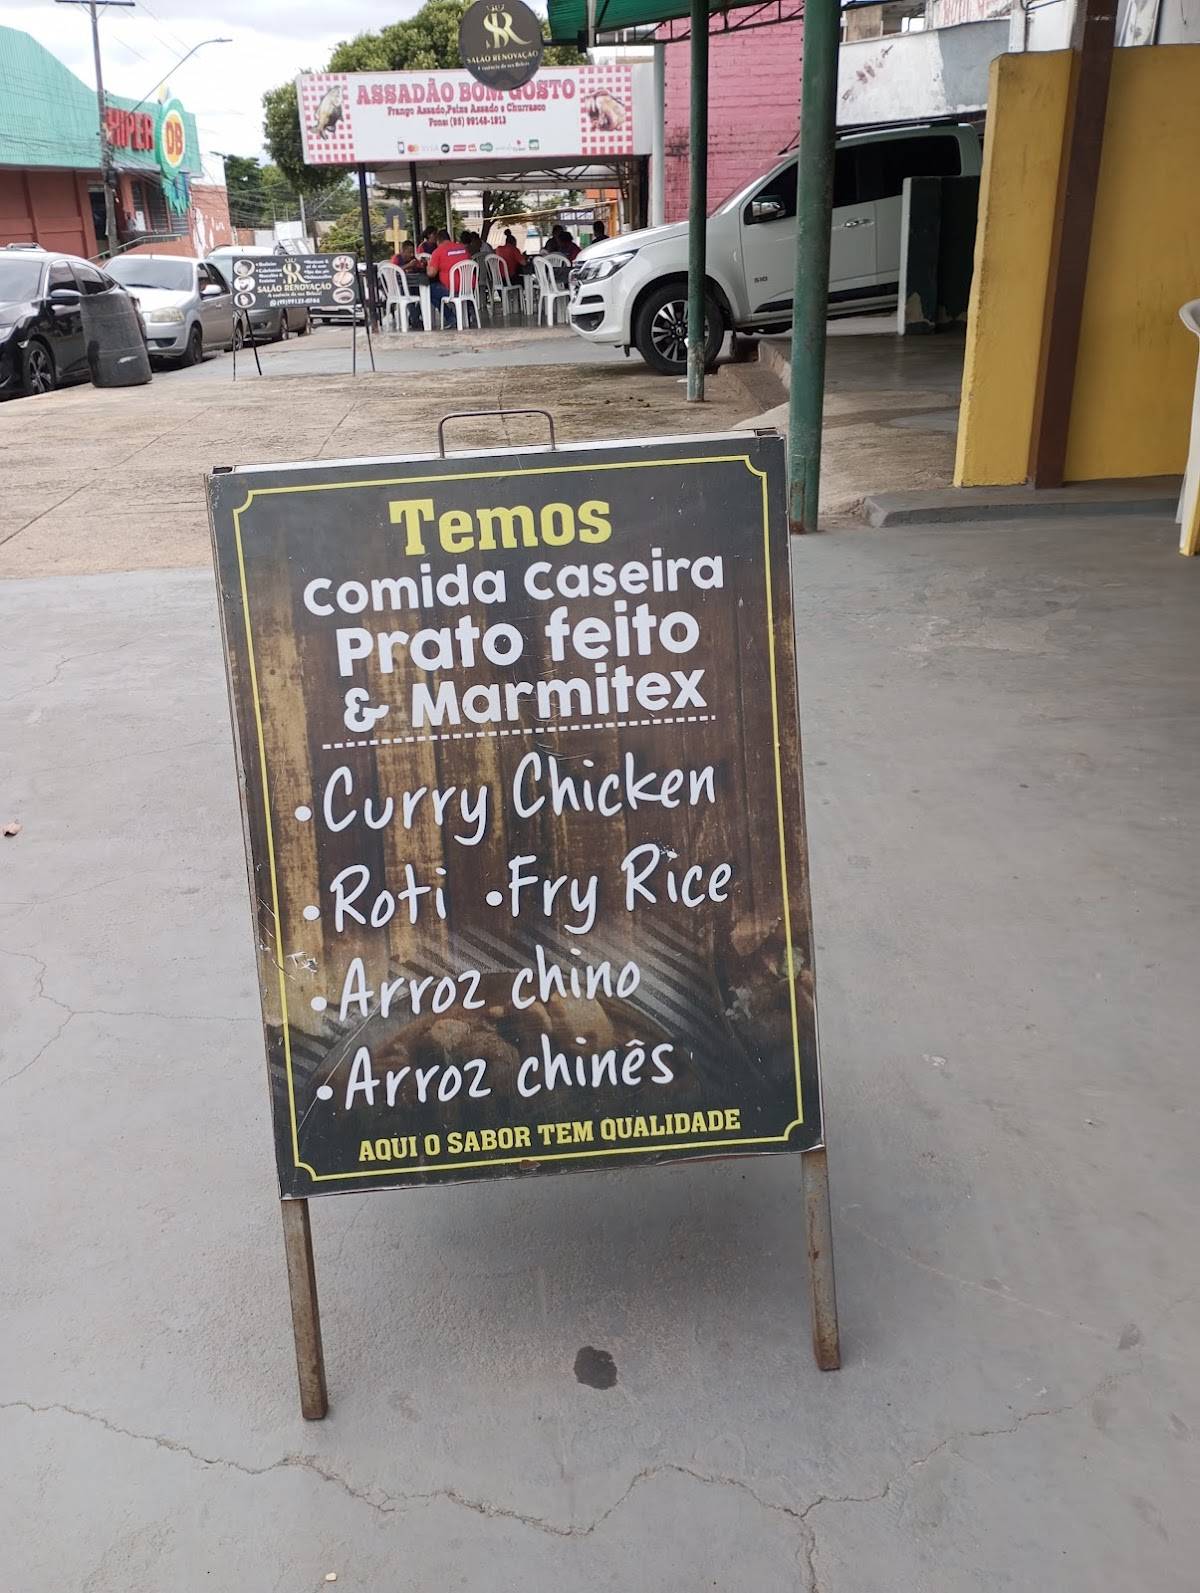 SR
SALÃO RENOVAÇÃO
A essência da sua Beleza
ASSADÃO BOM GOSTO
Frango Assado, Peixe Assado e Churrasco
HIPER DB
SALÃO RENOVAÇÃO
S10
Temos
Comida Caseira
Prato feito
& Marmitex
•Curry Chicken
•Roti •Fry Rice
•Arroz chino
•Arroz chinês
AQUI O SABOR TEM QUALIDADE